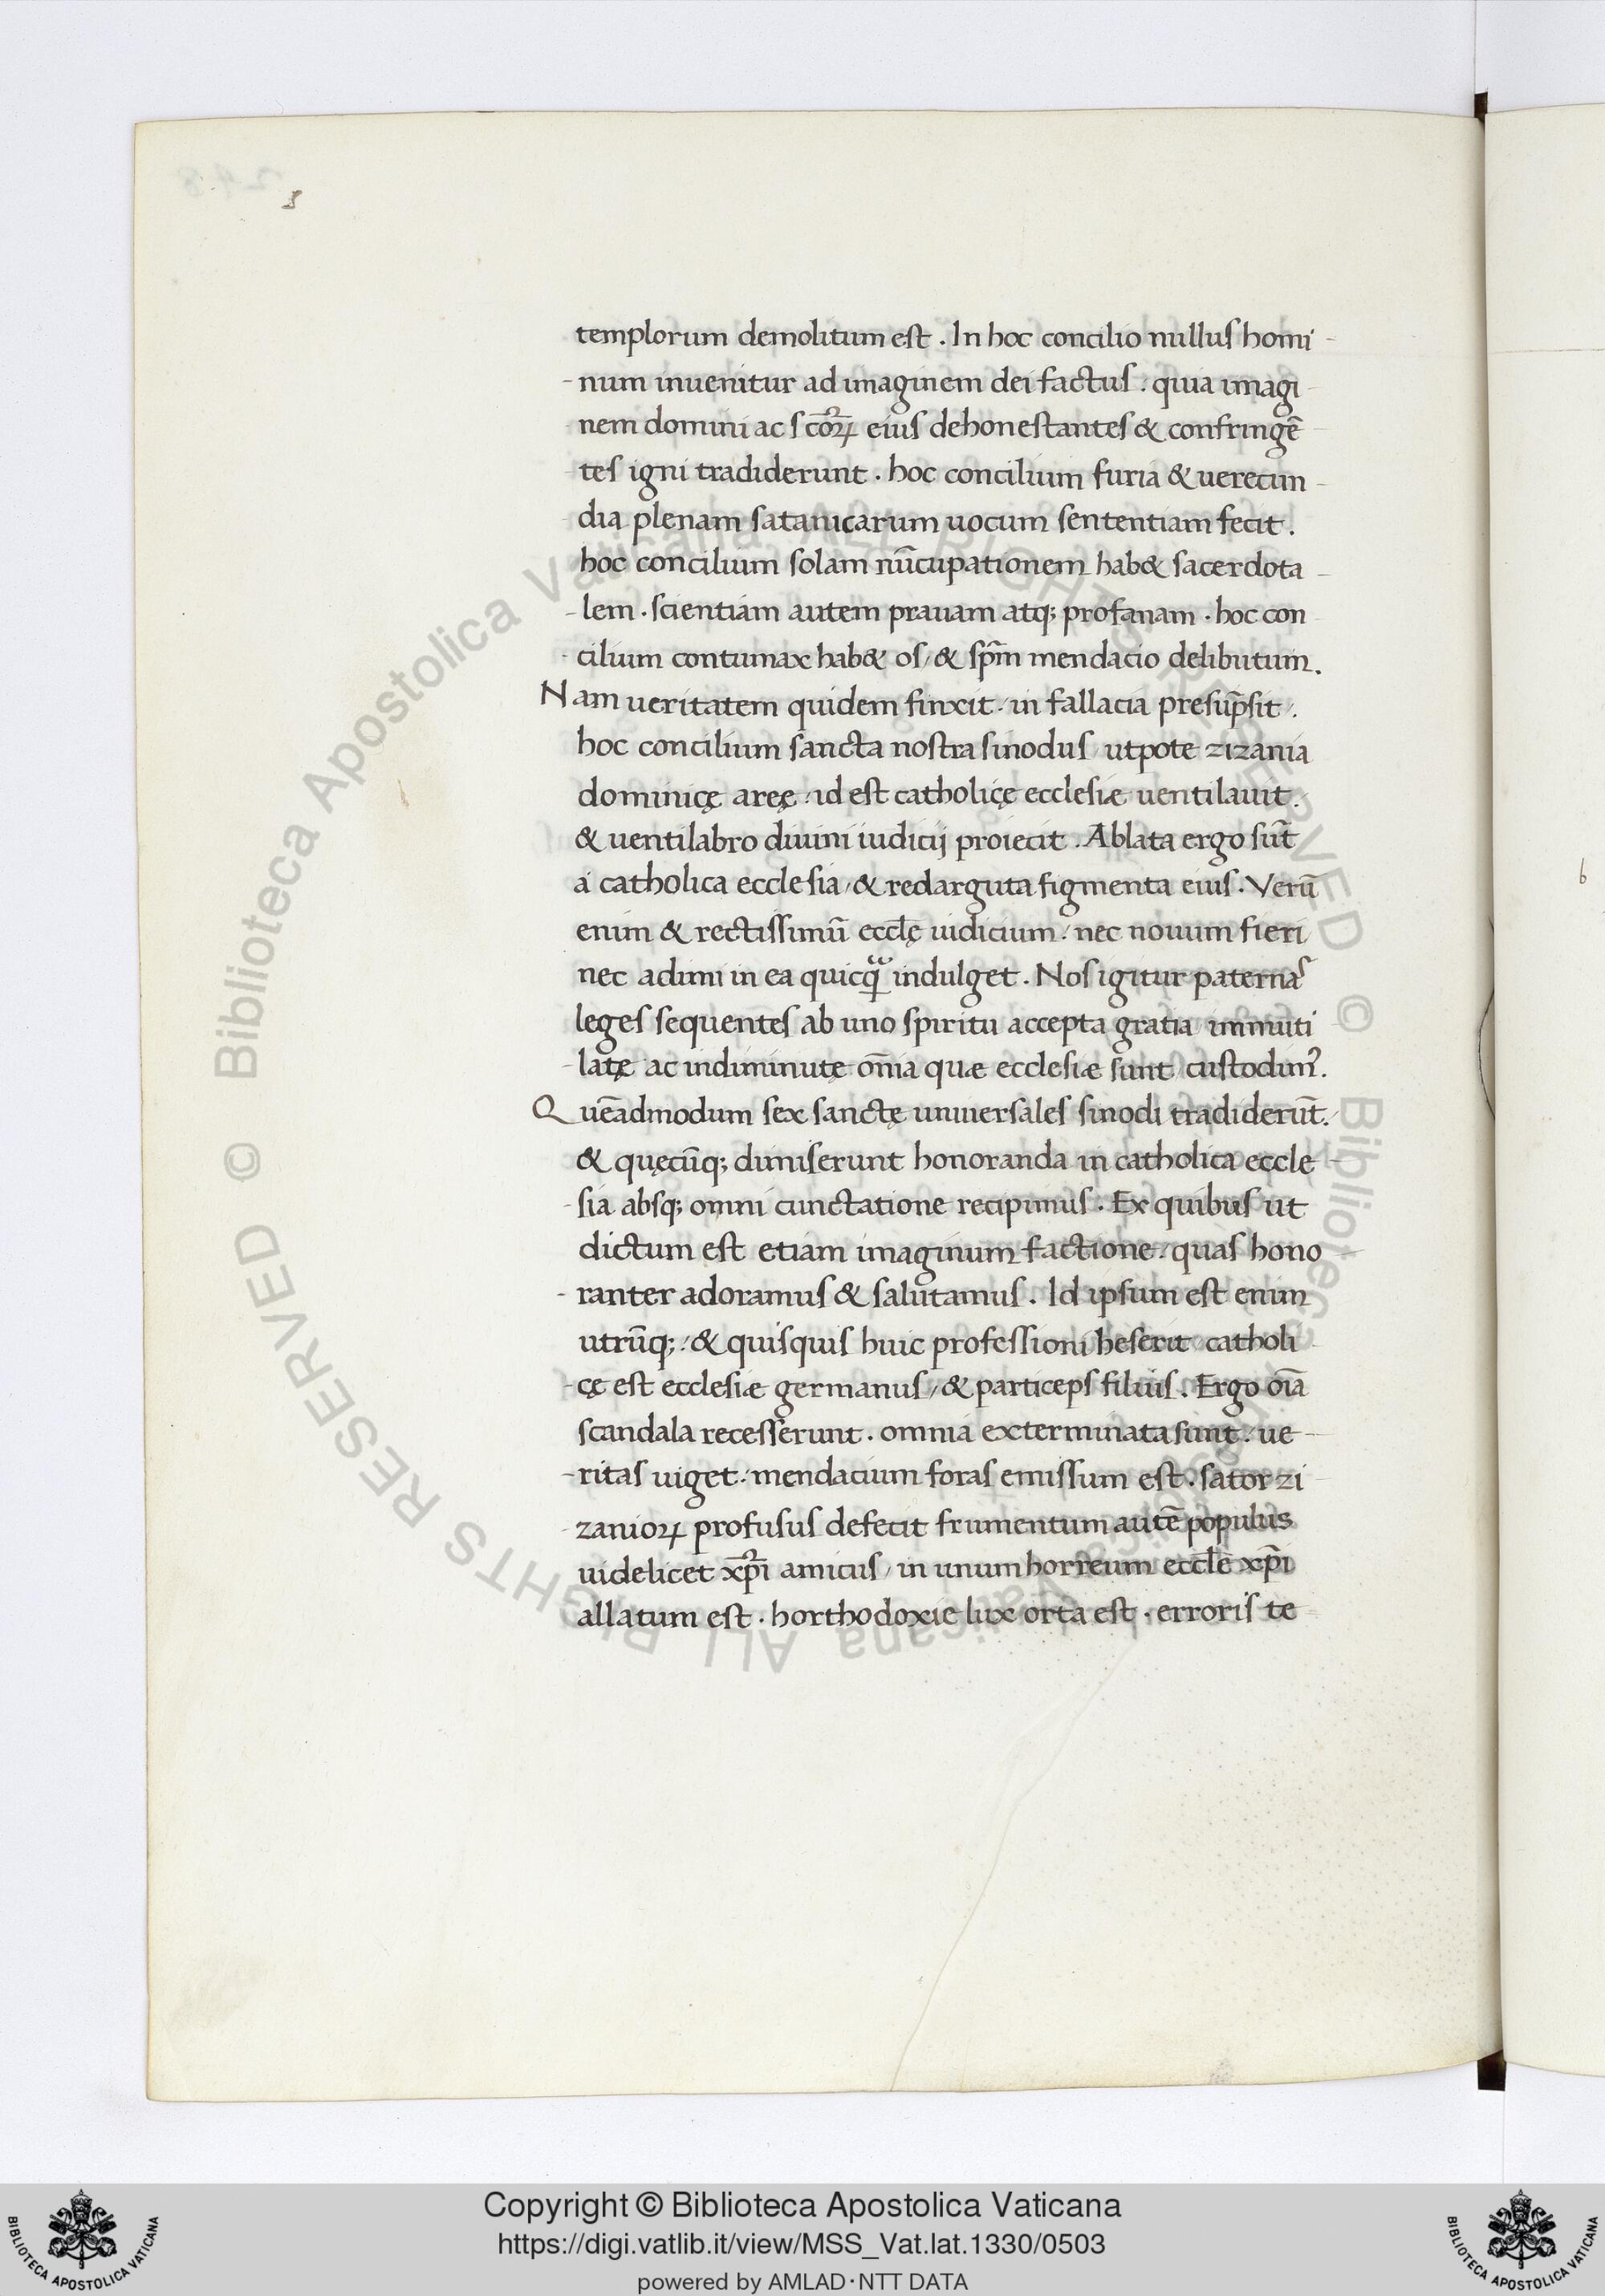 templorum demolitum est . In hoc concilio nullus homi-
-num inuenitur ad imaginem dei factus : quia imagi
nem domini ac scōꝝ eius dehonestantes & confringē
tes igni tradiderunt . hoc concilium furia & uerecun-
dia plenam satanicarum uocum sententiam fecit .
hoc concilium solam nūcupationem hab& sacerdota-
-lem . scientiam autem prauam atq; profanam . hoc con
cilium contumax hab& os / & spm̄ mendacio delibutum .
Nam ueritatem quidem finxit / in fallacia presūpsit / .
hoc concilium sancta nostra sinodus / utpote zizania
dominicę areę / id est catholicę ecclesiæ uentilauit .
& uentilabro diuini iudicij proiecit . Ablata ergo sūt
a catholica ecclesia / & redarguta figmenta eius . Verū
enim & rectissimū eccłę iudicium : nec nouum fieri
nec adimi in ea quicq̄ indulget . Nos igitur paternas
leges sequentes ab uno spiritu accepta gratia immuti
-latę ac indiminutę om̄ia quæ ecclesiæ sunt custodim᷒ .
Quēadmodum sex sanctę uniuersales sinodi tradiderūt .
& quęcūq; dimiserunt honoranda in catholica eccle-
-sia absq; omni cunctatione recipimus . Ex quibus ut
dictum est etiam imaginum factione : quas hono
-ranter adoramus & salutamus . Id ipsum est enim
utrūq; : & quisquis huic professioni heserit / catholi-
-cę est ecclesiæ germanus / & particeps filius . Ergo oīa
scandala recesserunt . omnia exterminata sunt : ue-
-ritas uiget : mendacium foras emissum est . sator zi
zanioꝝ profusus defecit frumentum autē populus
uidelicet xp̄i amicus / in unum horreum eccłe xp̄i
allatum est . horthodoxie lux orta est . erroris te
b
© Biblioteca Apostolica Vaticana ALL RIGHTS RESERVED © Biblioteca Apostolica Vaticana ALL RIGHTS RESERVED
Copyright © Biblioteca Apostolica Vaticana
https://digi.vatlib.it/view/MSS_Vat.lat.1330/0503
powered by AMLAD·NTT DATA
BIBLIOTECA APOSTOLICA VATICANA
BIBLIOTECA APOSTOLICA VATICANA